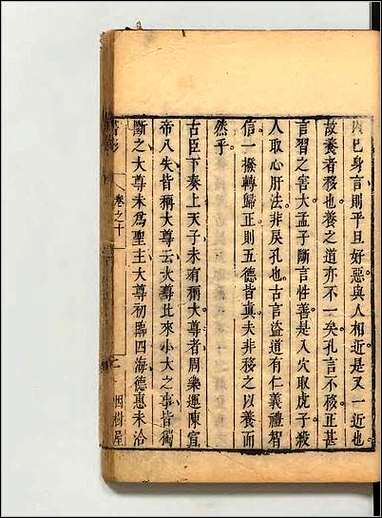 以已身言則平旦好惡與人相近是又一近也
故養者移也養之道亦不一矣孔言不移正甚
言習之害大孟子斷言性善是入穴取虎子殺
人取心肝法非戾孔也古言盜道有仁義禮智
信一撥轉歸正則五德皆真夫非移之以養而
然乎
古臣下奏上天子未有稱大尊者周樂運陳宣
帝八失皆稱大尊云大尊比來小大之事皆獨
斷之大尊未為聖主大尊初臨四海德惠未洽
書影
卷之十
因樹屋